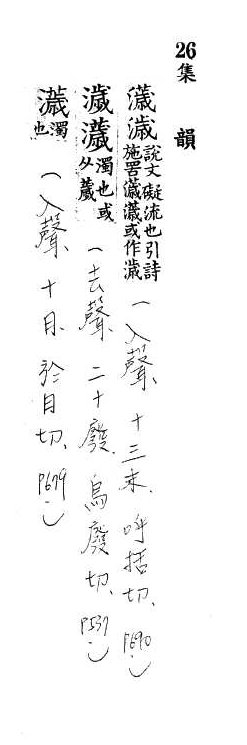 26
集韻
濊㵧說文礙流也引詩
施罟濊濊或作㵧
（入聲、十三末、呼括切、P690）
濊薉濁也或
从薉
（去聲、二十廢、烏廢切、P537）
濊濁
也
（入聲十月、於月切、P679）